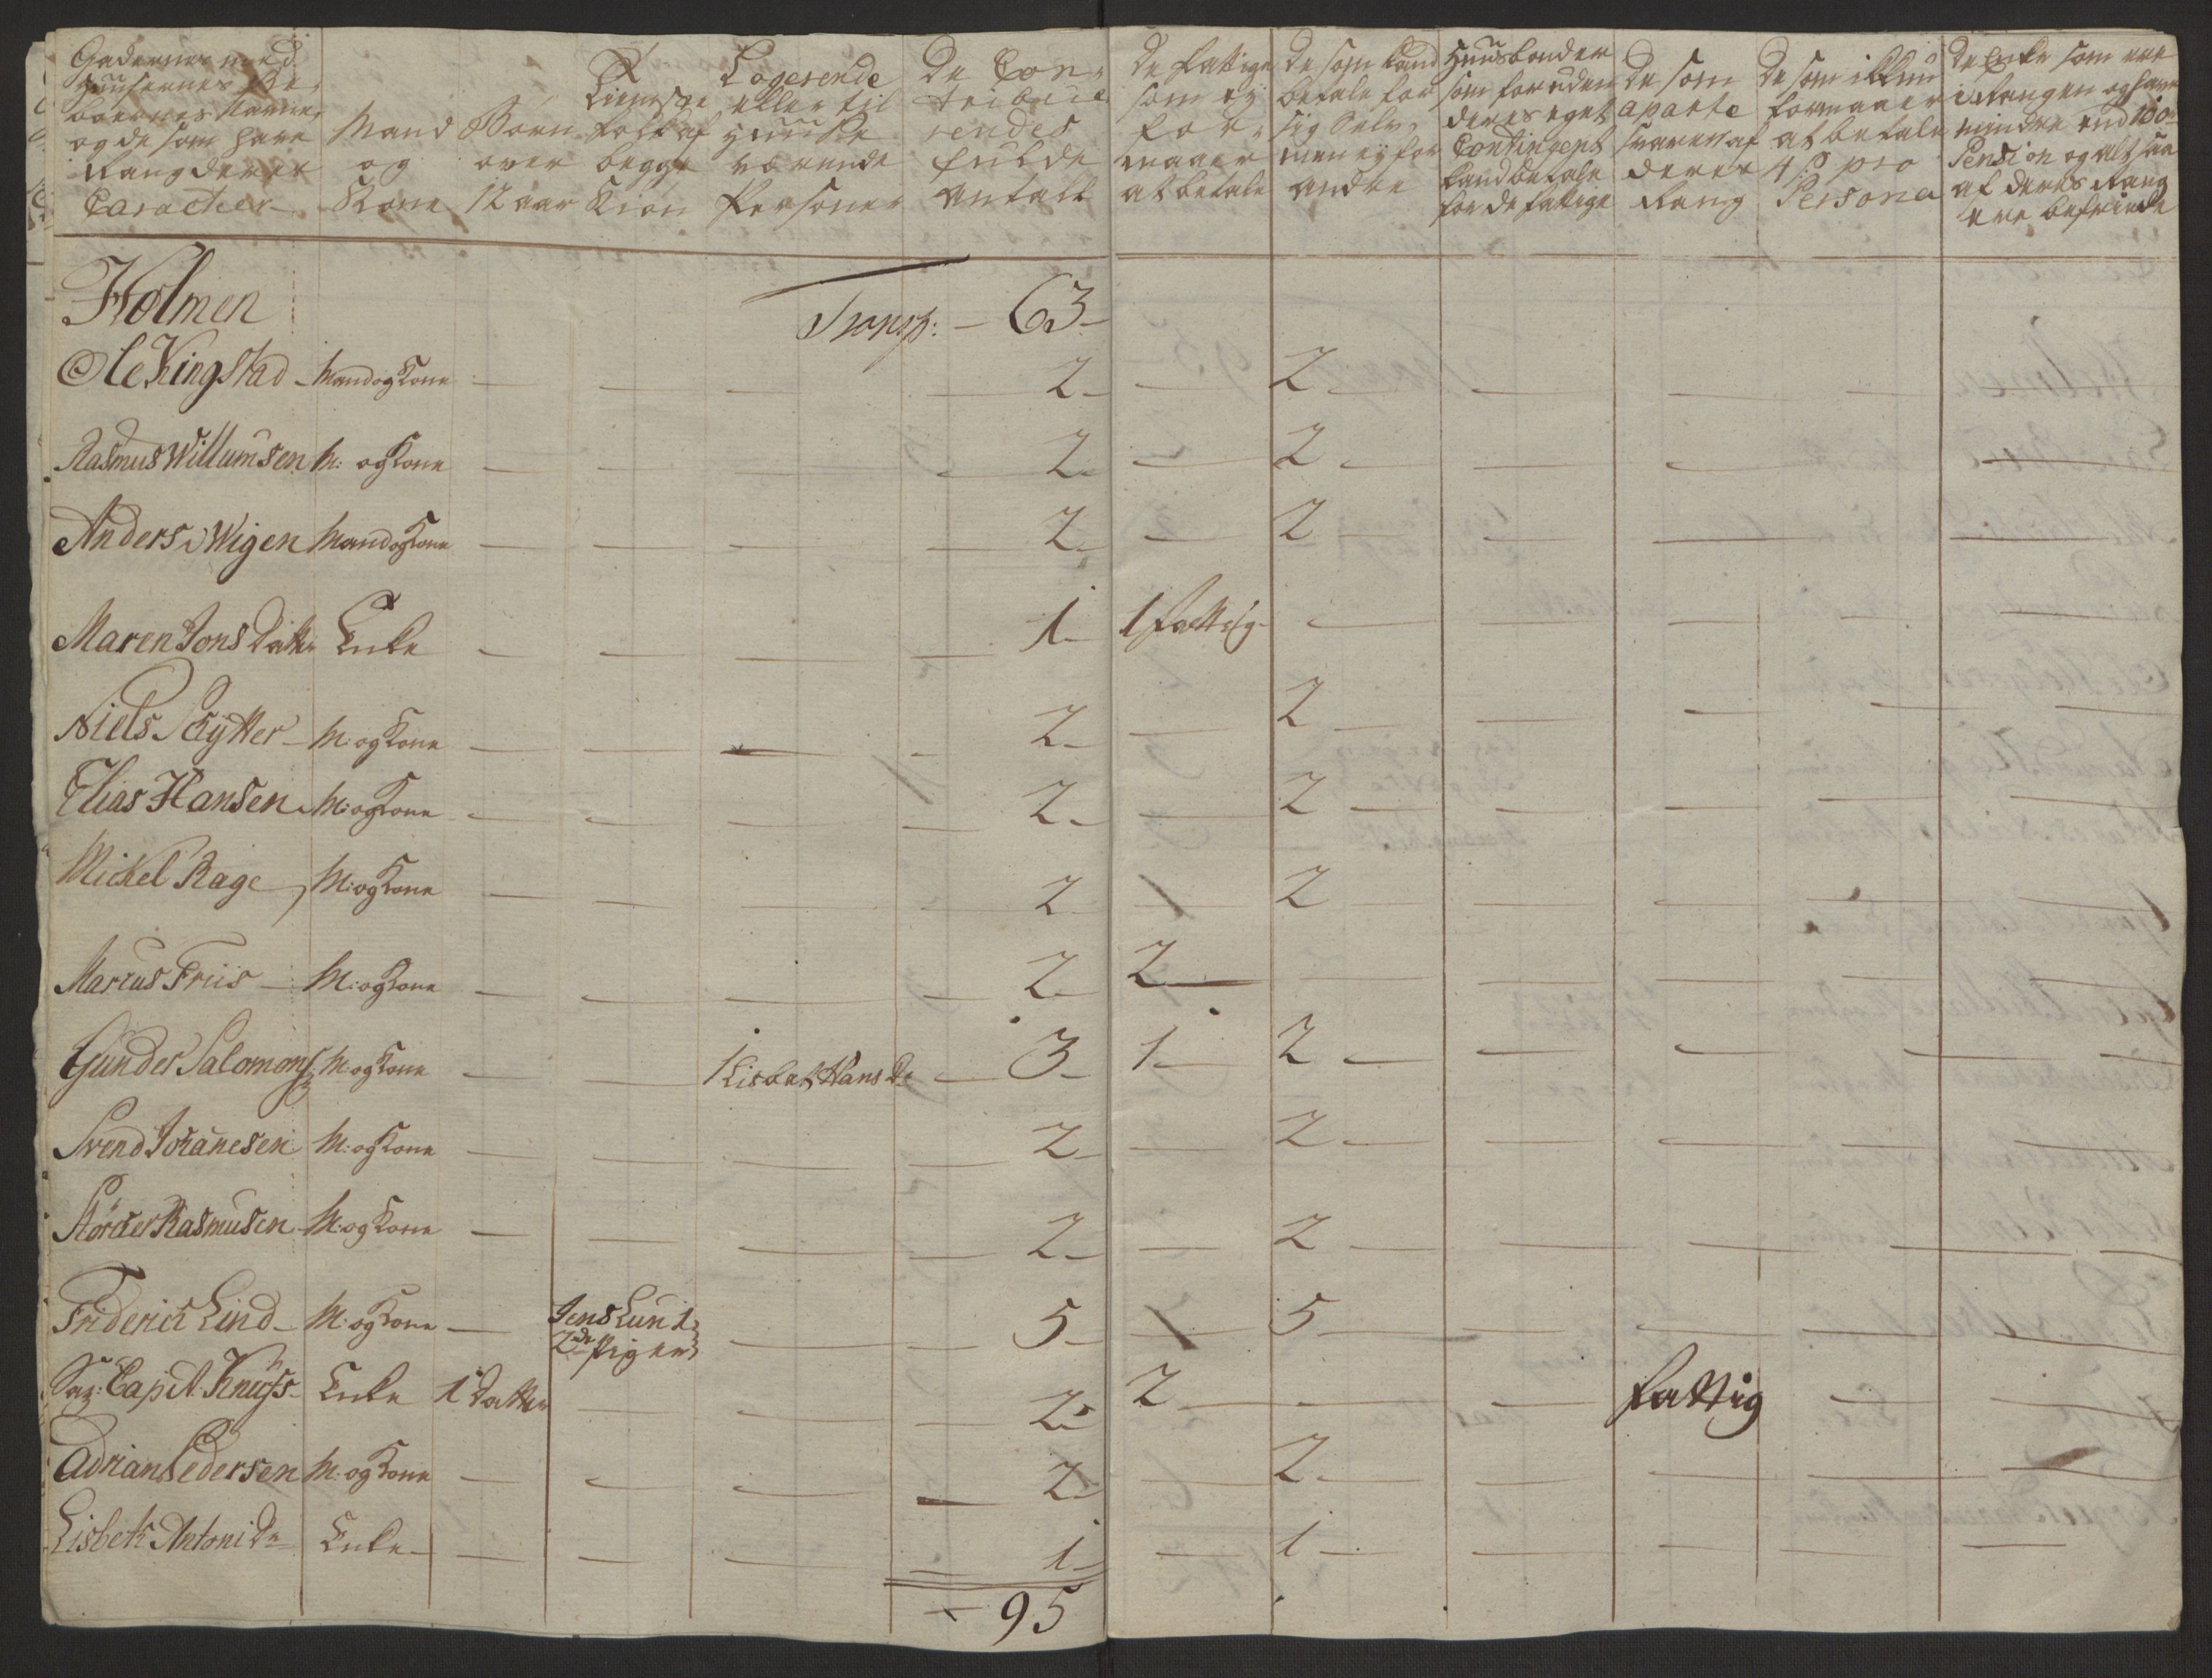 Gadernes med
Huusernes Be-
boernes Navne,
og de som have
Rang deres
Caracteer
Mand
og
Kone
Børn
over
12 aar
Tieniste
folk af
begge
Kiøn
Logerende
eller til
Huuse
værende
Personer
De Con-
tribue-
rendes
fulde
Antall
De fattige
som ey
for-
maaer
at betale
De som kand
betale for
sig selv,
men ey for
andre
Huusbonder
som foruden
deres eget
Contingent
kand betale
for de fattige
De som
aparte
svarer af
deres
Rang
De som ikkun
formaaer
at betale
4 s pro
Persona
De Enker som ere
i Rangen og have
mindre end 100
Pension og altsaa
af deres Rang
ere befriede
Holmen
Transp: - 63 -
Ole Ringstad - Mand og Kone - - - 2 - - 2 - - - -
Rasmus Willumsen M: og Kone - - - - 2 - - 2 - - - - -
Anders Wigen Mand og Kone - - - - 2 - - 2 - - - -
Maren Jons Datter Enke - - - - 1 - 1 fattig - - - - - -
Niels Schytter - M: og Kone - - - - 2 - - 2 - - - - -
Elias Hansen - M: og Kone - - - - 2 - - 2 - - - - -
Mickel Rage - M: og Kone - - - - 2 - - 2 - - - - -
Marcus Friis - M: og Kone - - - - 2 - 2 - - - - - -
Gunder Salomons M: og Kone - - 1 Lisbet Hans Dr - 3 - 1 - 2 - - - - -
Svend Johanesen M: og Kone - - - - 2 - - 2 - - - - -
Störcker Rasmusen - M: og Kone - - - - 2 - - 2 - - - - -
Friderich Lind - M: og Kone - Jens Lun 1
2de Piger - - 5 - - 5 - - - - -
Sal: Capit. Knüfs - Enke 1 Datter - - - 2 - 2 - - - fattig - -
Adrian Pedersen M: og Kone - - - - 2 - - 2 - - - - -
Lisbeth Antoni Dr Enke - - - - - 1 - - 1 - - - - -
- 95